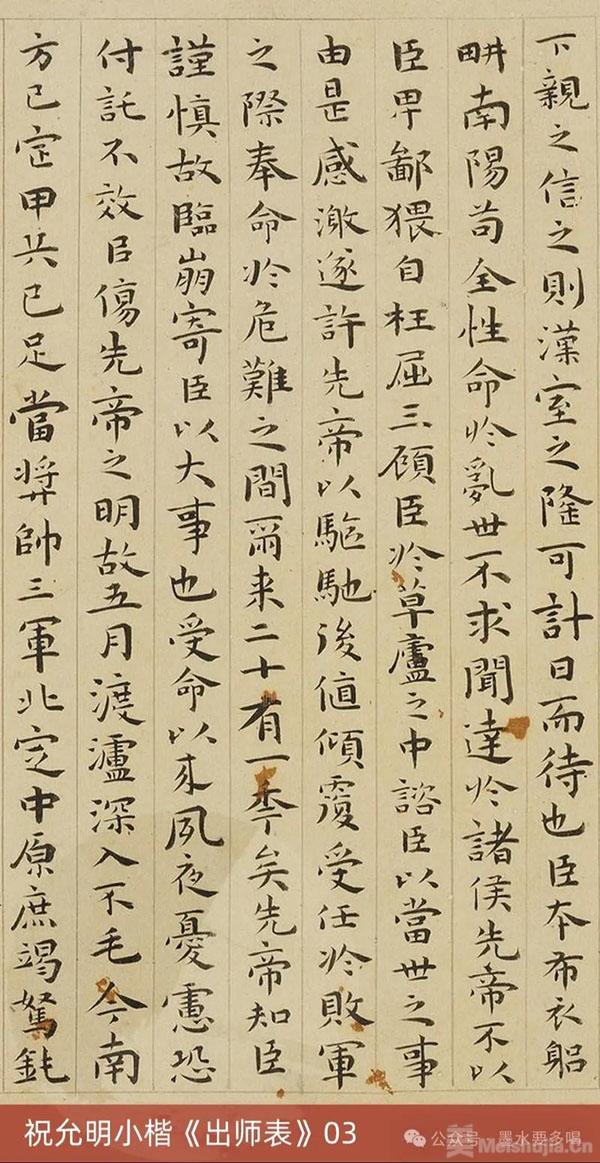 下親之信之則漢室之隆可計日而待也臣本布衣躬
畊南陽苟全性命於亂世不求聞達於諸侯先帝不以
臣卑鄙猥自枉屈三顧臣於草廬之中諮臣以當世之事
由是感激遂許先帝以驅馳後値傾覆受任於敗軍
之際奉命於危難之間爾来二十有一秊矣先帝知臣
謹慎故臨崩寄臣以大事也受命以来夙夜憂慮恐
付託不效㠯傷先帝之明故五月渡瀘深入不毛今南
方已定甲兵已足當奨帥三軍北定中原庶竭駑鈍
祝允明小楷《出师表》03
公众号·墨水要多喝
美 Meishujia.Cn